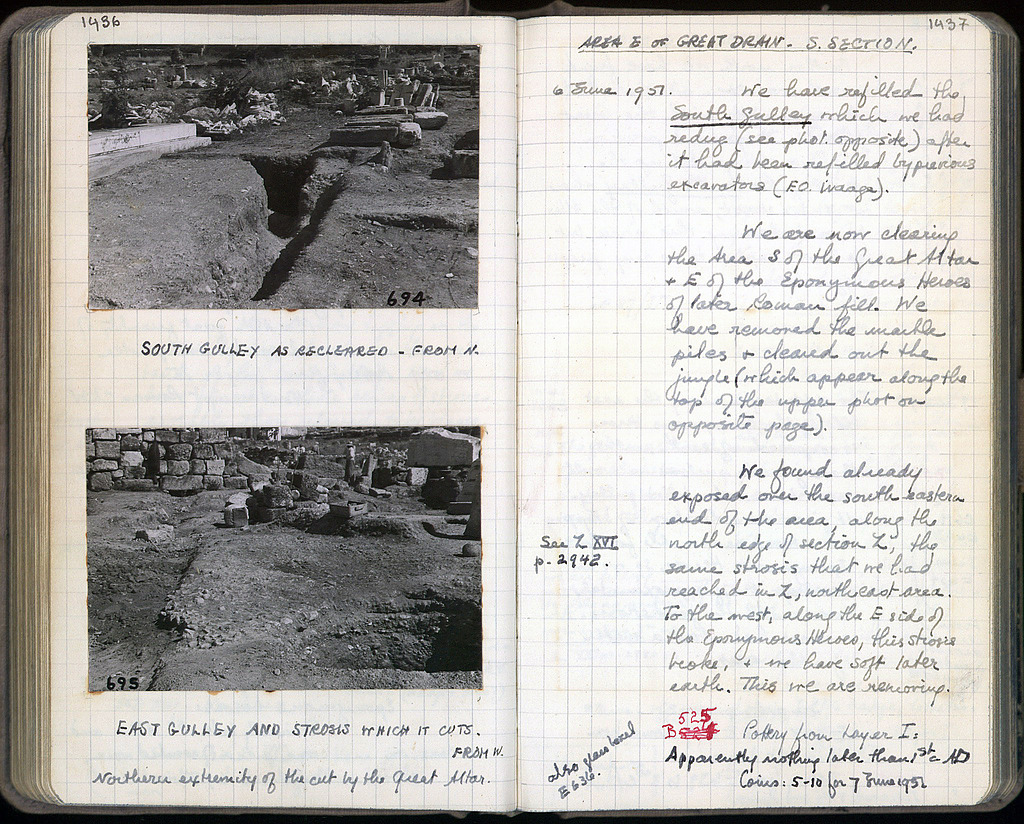 1436
694
SOUTH GULLEY AS RECLEARED - FROM N.
695
EAST GULLEY AND STROSIS WHICH IT CUTS.
FROM W.
Northern extremity of the cut by the Great Altar.
1437
AREA E OF GREAT DRAIN. S. SECTION.
6 June 1951. We have refilled the
South Gulley which we had
redug (see phot. opposite) after
it had been refilled by previous
excavators (F.O. Waage).
We are now clearing
the Area S of the Great Altar
+ E of the Eponymous Heroes
of later Roman fill. We
have removed the marble
piles + cleared out the
jungle (which appear along the
top of the upper phot on
opposite page).
We found already
exposed over the south eastern
end of the area, along the
north edge of section Z, the
See Z XVI
p. 2942.
same strosis that we had
reached in Z, northeast area.
To the west, along the E side of
the Eponymous Heroes, this strosis
broke, + we have soft later
earth. This we are removing.
525
B
Pottery from Layer I:
Apparently nothing later than 1st c AD
Coins: 5-10 for 7 June 1951
also glass bowl
E 636.